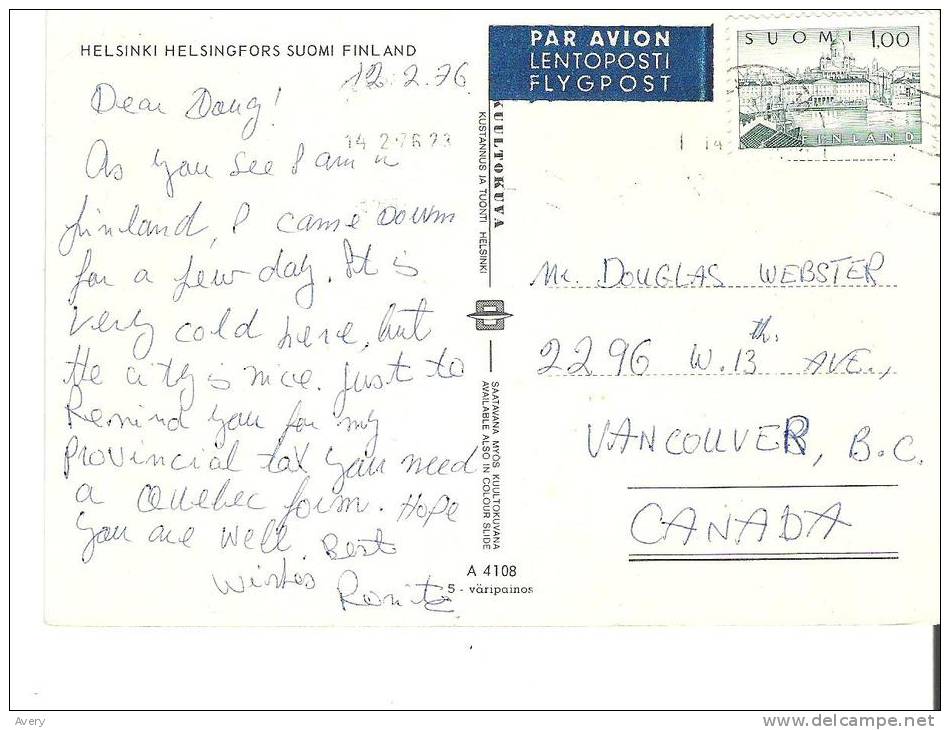 HELSINKI HELSINGFORS SUOMI FINLAND
12.2.76
Dear Doug!
14.2.76 23
As you see I am in
finland, I came down
for a few day. It is
very cold here, but
the city is nice. Just to
Remind you for my
Provincial tax you need
a Quebec form. Hope
you are well. Best
wishes
Ronit
PAR AVION
LENTOPOSTI
FLYGPOST
SUOMI 1,00
FINLAND
14
KUULTOKUVA
KUSTANNUS JA TUONTI HELSINKI
SAATAVANA MYÖS KUULTOKUVANA
AVAILABLE ALSO IN COLOUR SLIDE
A 4108
5 - väripainos
Mr. DOUGLAS WEBSTER
2296 W. 13th. AVE.,
VANCOUVER, B.C.
CANADA
Avery
delcampe.net